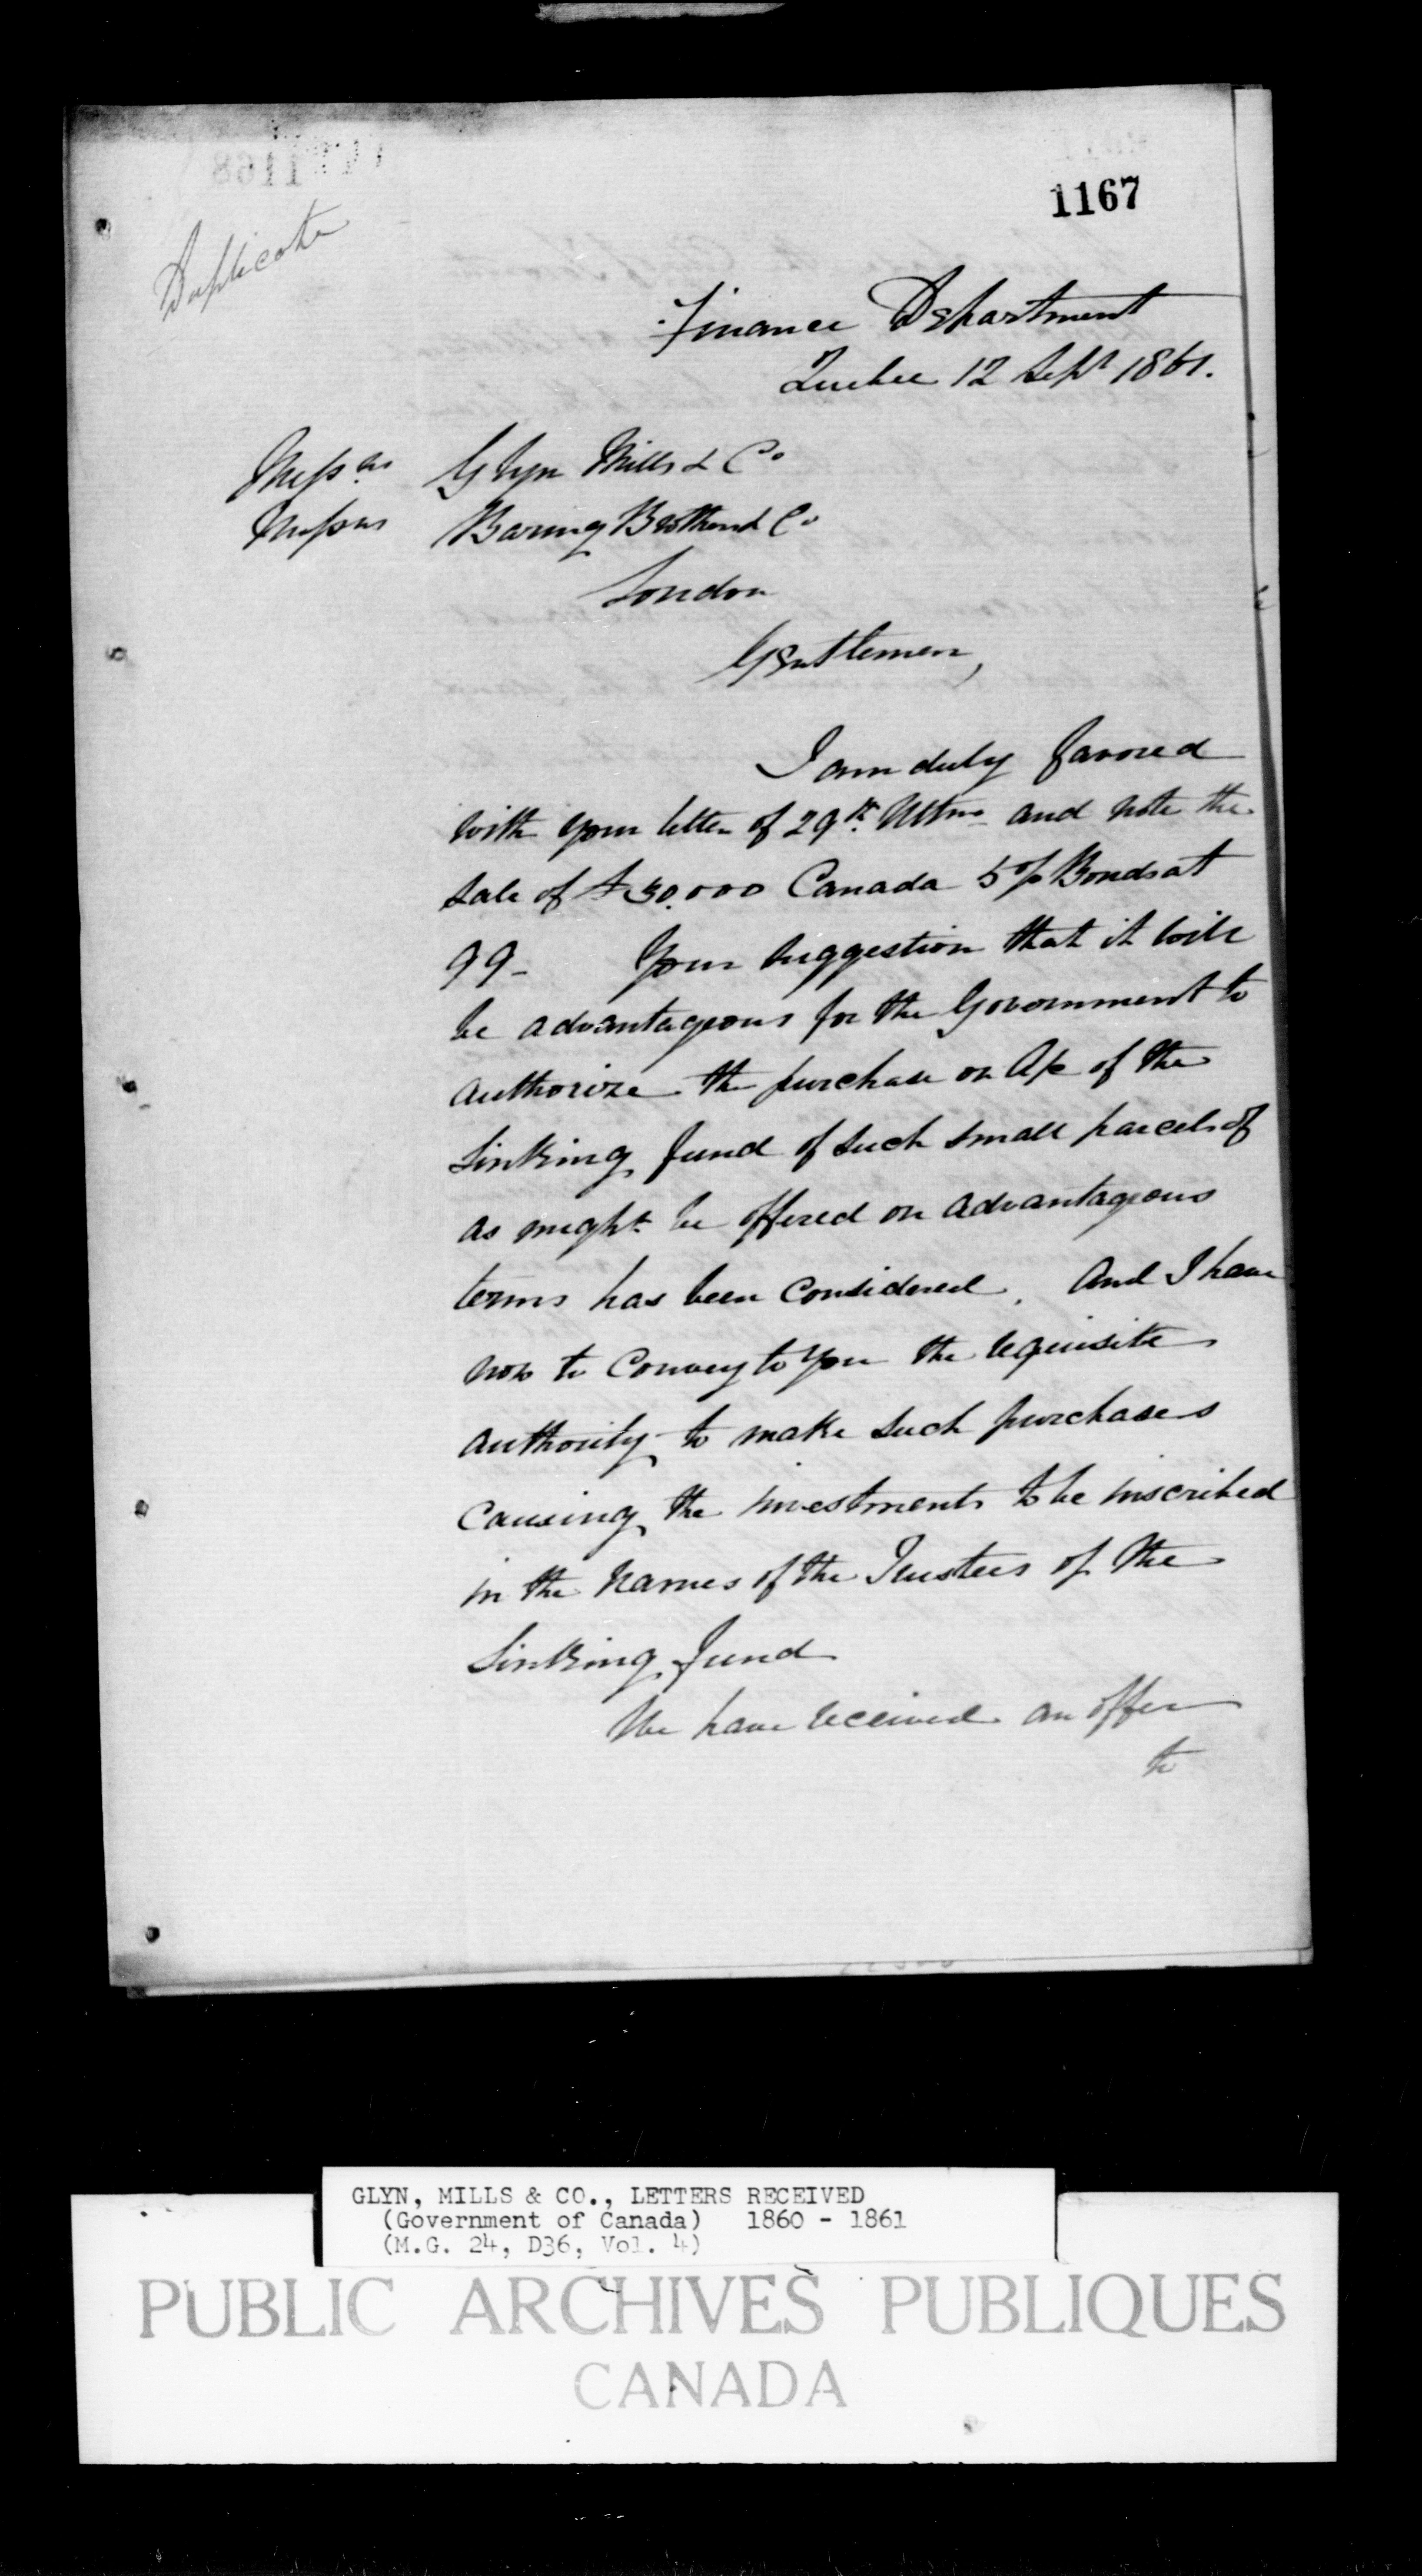 1167
Duplicate
Finance Department
Quebec 12 Sept 1861.
Messrs Glyn Mills & Co
Messrs Baring Brothers & Co
London
Gentlemen,
I am duly favored
with your letter of 29th Ulto and note the
sale of £30.000 Canada 5 % Bonds at
99 - Your suggestion that it will
be advantageous for the Government to
authorize the purchase on A/c of the
Sinking fund of such small parcels of
as might be offered on advantageous
terms has been considered. And I have
now to convey to you the requisite
authority to make such purchases
causing the investments to be inscribed
in the names of the Trustees of the
Sinking fund
We have received an offer
to
GLYN, MILLS & CO., LETTERS RECEIVED
(Government of Canada) 1860 - 1861
(M.G. 24, D36, Vol. 4)
PUBLIC ARCHIVES PUBLIQUES
CANADA